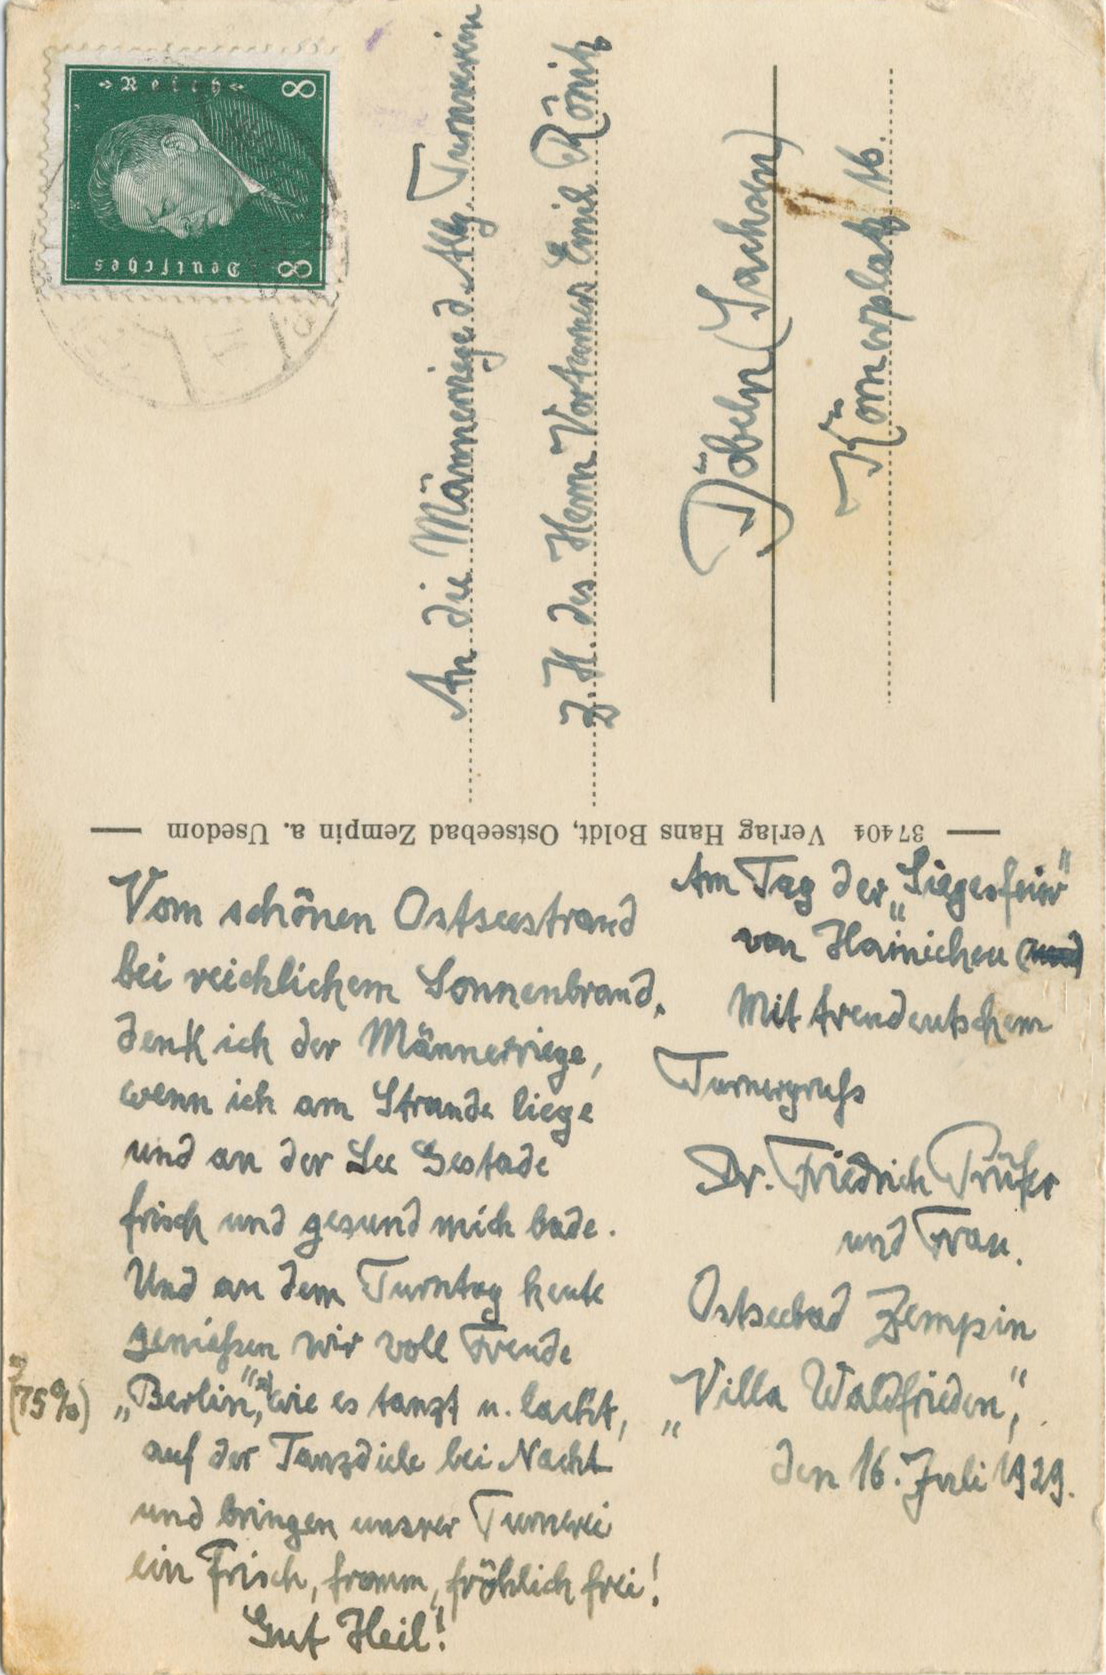 Deutsches Reich
8 8
An die Männerriege d. Allg Turnverein
Z. H. des Herrn Vorturner Emil König
Döbeln (Sachsen)
Körnerplatz 16.
37404 Verlag Hans Boldt, Ostseebad Zempin a. Usedom
Vom schönen Ostseestrand
bei reichlichem Sonnenbrand,
denk ich der Männerriege,
wenn ich am Strande liege
und an der See Gestade
frisch und gesund mich bade.
Und an dem Turntag heute
genießen wir voll Freude
„Berlin“, wie es tanzt u. lacht,
(75%)
auf der Tanzdiele bei Nacht
und bringen unsrer Turnerei
ein Frisch, fromm, fröhlich frei!
Gut Heil!
Am Tag der „Siegesfeier“
von Hainichen
Mit treudeutschem
Turnergruß
Dr. Friedrich Prüfer
und Frau.
Ostseebad Zempin
„Villa Waldfrieden“,
den 16. Juli 1929.